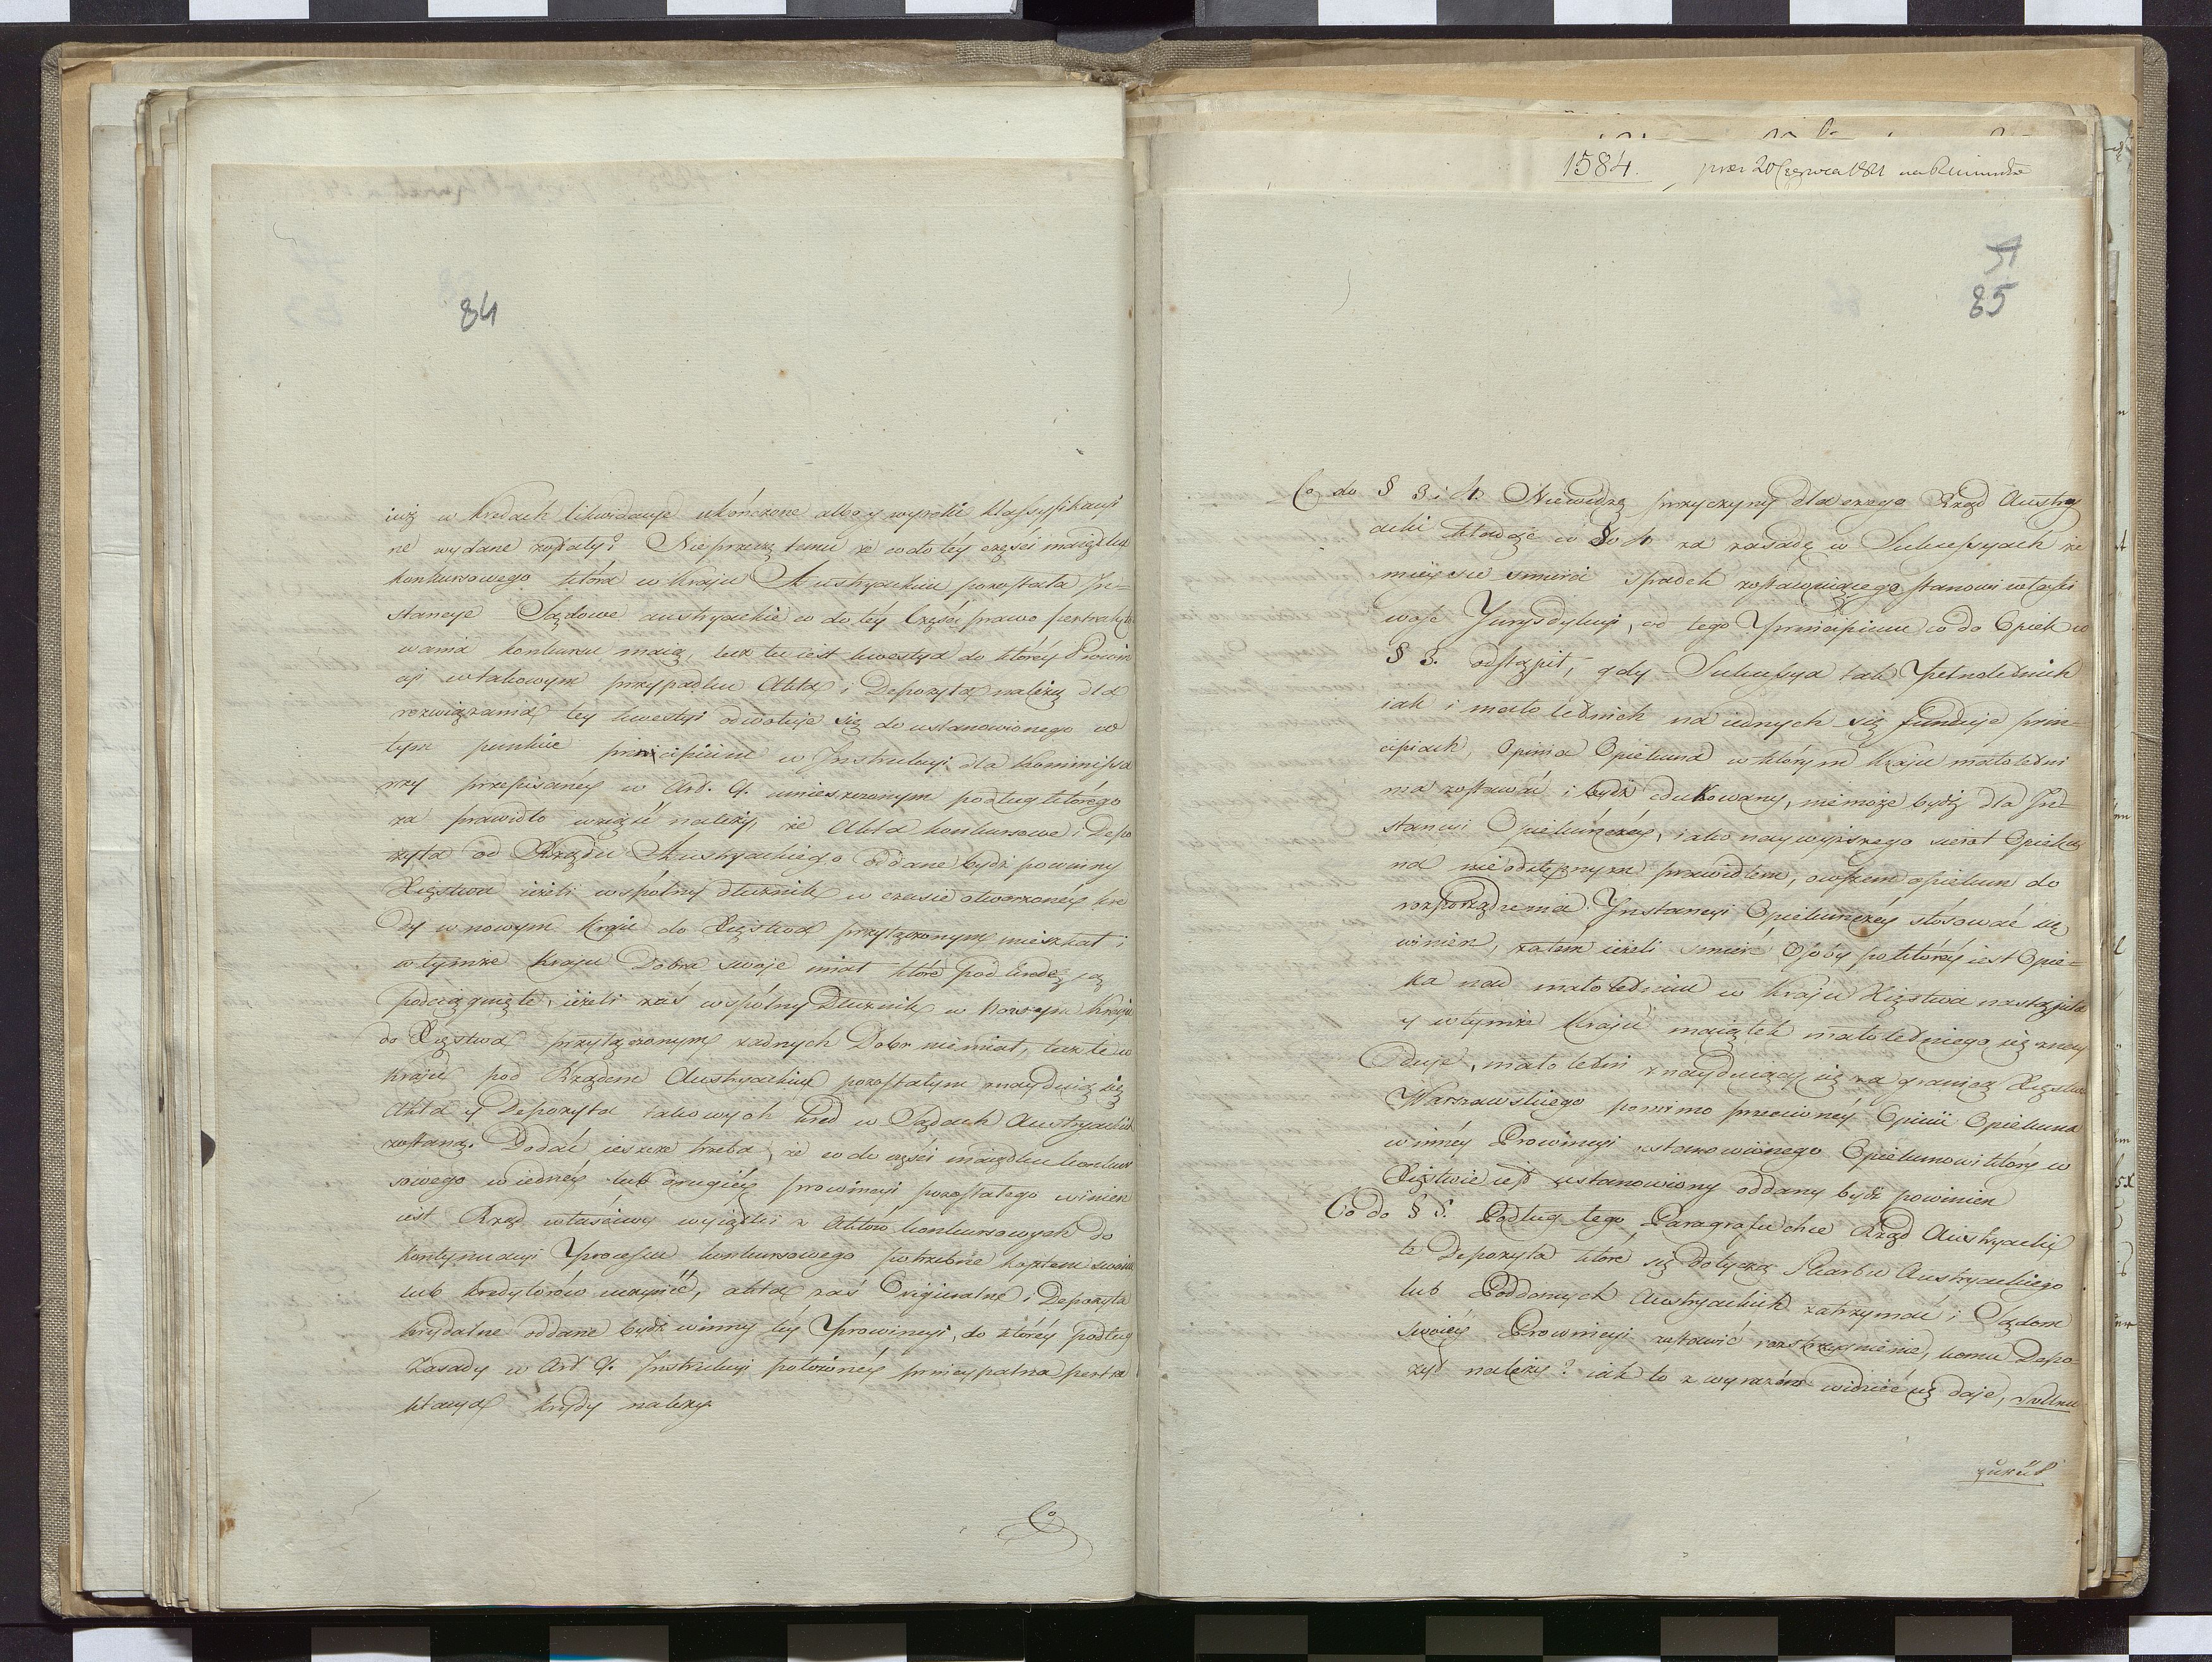 84
iuż w kredach likwidacye ukończone albo y wyroki klassyfikacyi
ne wydane zostały? Nieprzeczę temu że co do téy części maiątku
konkursowego która w kraju Austryackim pozostała In-
stancye Sądowe austryackie co do téy Części prawo pertrakto
wania konkursu maią, lecz tu iest kwestya do któréy Prowin
cyi w takowym przypadku Akta i Depozyta należą dla
rozwiązania tey kwestyi odwołuje się do ustanowionego w
tym punkcie principium w Instrukcyi dla Kommissa
rzy przepisanéy w Art. 9. umieszczonym podług którego
za prawidło wziąść należy, że Akta konkursowe i Depo
zyta od Rządu Austryackiego oddane bydź powinny
Xięstwu ieżeli wspólny dłużnik w czasie otworzonéy kre
dy w nowym Kraju do Xięstwa przyłączonym mieszkał i
w tymże Kraju Dobra swoje miał które pod kredę są
podciągnięte, ieżeli zaś wspólny Dłużnik w Nowym Kraju
do Xięstwa przyłączonym żadnych Dobr nie miał, lecz te w
Kraju pod Rządem Austryackim pozostałym znayduią się
Akta y Depozyta takowych kred w Sądach Austryackich
zostaną. Dodać ieszcze trzeba, że co do części maiątku konkur
sowego w iednéy lub drugiéy prowincyi pozostałego winien
iest Rząd właściwy wyiątki z Aktów konkursowych do
kontynuacyi Processu konkursowego potrzebne kosztem swoim
lub kredytorów uczynić, akta zaś Originalne i Depozyta
krydalne oddane bydź winny téy Prowincyi, do któréy podług
Zasady w Art 9. Instrukcyi położonéy principalna pertra
ktacya krydy należy
Co
1584. prez 20 Czerwca 1811
51
85
Co do § 3 i 4. Niewidzę przyczyny dla czego Rząd Austry
acki kładąc w §o 4 za zasadę w Sukcessyach że
mieysce śmierci spadek zostawuiącego stanowi właści
wość Jurysdykcyi, od tego Principium co do Opiek w
§ 3. odstąpił, gdy Sukcessya tak Pełnoletnich
iak i małoletnich na iednych się funduje prin-
cipiach, Opinia Opiekuna w którym Kraju małoletni
ma zostawać i bydź edukowany, nie może bydź dla In-
stancyi Opiekuńczéy, iako naywyższego sierot Opieku
na nieodstępnym prawidłem, owszem opiekun do
rozporządzenia Instancyi Opiekuńczéy stosować się
winien, zatém ieżeli śmierć Osoby po któréy iest Opie-
ka nad małoletnim w Kraju Xięstwa nastąpiła
y w tymże Kraju maiątek małoletniego się znay
duje, małoletni znayduiący się za granicą Xięstwa
Warszawskiego pomimo przeciwnéy Opinii Opiekuna
w innéy Prowincyi ustanowionego Opiekunowi który w
Xięstwie iest ustanowiony oddany bydź powinien
Co do § 5. Podług tego Paragrafu chce Rząd Austryacki
te Depozyta które się dotyczą Skarbu Austryackiego
lub Poddanych Austryackich zatrzymać i Sądom
swoiéy Prowincyi zostawić rozstrzygnienie, komu Depo-
zyt należy? iak to z wyrazów widzieć się daje,
zurück